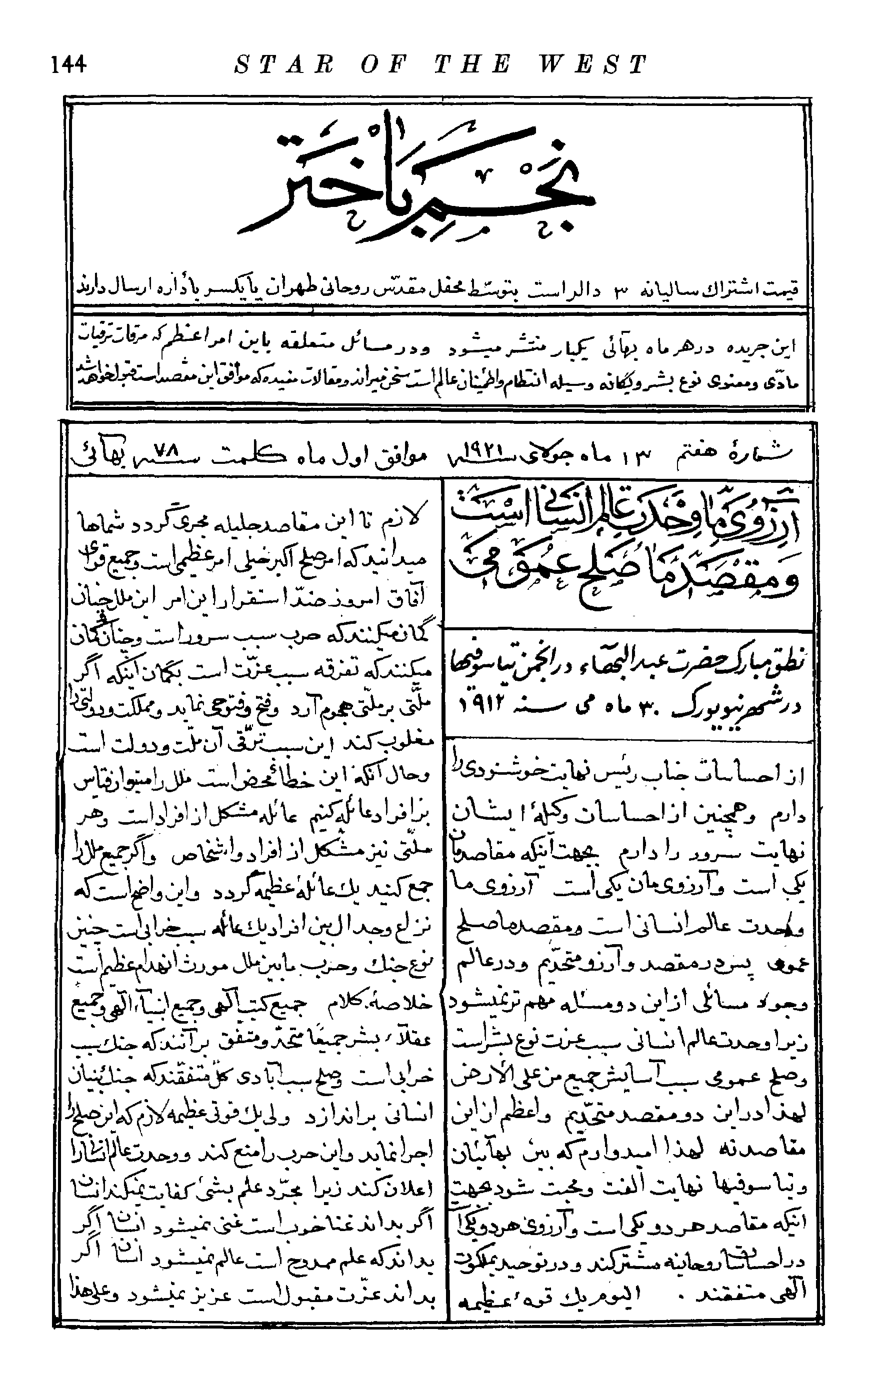 144 STAR OF THE WEST
نجم باختر
قیمت اشتراک سالیانه ۳ دالر است بتوسّط محفل مقدّس روحانی طهران یا یکسر باداره ارسال دارند
این جریده در هر ماه بهائی یکبار منتشر میشود و در مسائل متعلقه باین امر اعظم که مرقات ترقیات
مادّی و معنوی نوع بشر و یگانه وسیله انتظام و اطمینان عالم است سخن میراند و مقالات مفیده که موافق این مقصد است قبول خواهد شد
شمارۀ هفتم ۱۳ ماه جولای سنه ۱۹۲۱ موافق اول ماه کلمت سنه ۷۸ بهائی
آرزوی ما وحدت عالم انسانی است
و مقصد ما صلح عمومی
نطق مبارک حضرت عبدالبهاء در انجمن تیاسوفیها
در شهر نیویورک ۳۰ ماه می سنه ۱۹۱۲
از احساسات جناب رئیس نهایت خوشنودی را
دارم و همچنین از احساسات وکیلۀ ایشان
نهایت سرور را دارم بجهت آینکه مقاصدمان
یکی است و آرزوی مان یکی است آرزوی ما
وحدت عالم انسانی است و مقصد ما صلح
عمومی پس در مقصد و آرزو متحدّیم و در عالم
وجود مسائلی از این دو مسئله مهم تر نمیشود
زیرا وحدت عالم انسانی سبب عزت نوع بشر است
و صلح عمومی سبب آسایش جمیع من علی الارض
لهذا در این دو مقصد متحدّیم و اعظم از این
مقاصد نه لهذا امیدوارم که بین بهائیان
و تیاسوفیها نهایت الفت و محبت شود بجهت
اینکه مقاصد هر دو یکی است و آرزوی هر دو یکی
در احساسات روحانیه مشترکند و در توحید بملکوت
الهی متفقند . الیوم یک قوه عظیمه
لازم تا این مقاصد جلیله مجری گردد شماها
میدانید که امر صلح اکبر خیلی امر عظیمی است و جمیع قوای
آفاق امروز ضدّ استقرار این امر این ملل چنان
گمان میکنند که حرب سبب سرور است و چنان گمان
میکنند که تفرقه سبب عزّت است بگمان اینکه اگر
ملّتی بر ملّتی هجوم آرد و فتح و فتوحی نماید و مملکت و دولتی را
مغلوب کند این سبب ترّقی آن ملّت و دولت است
و حال آنکه این خطائ محض است ملل را میتوان قیاس
بر افراد عائله کنیم عائله متشکل از افراد است و هر
ملّتی نیز متشکل از افراد و اشخاص و اگر جمیع ملل را
جمع کنید یک عائلۀ عظیمه گردد و این واضح است که
نزاع و جدال بین افراد یک عائله سبب خرابی است چنین
نوع جنک و حرب مابین ملل مورث انهدام عظیم است
خلاصۀ کلام جمیع کتب الهی و جمیع انبیآء الهی و جمیع
عقلآء بشر جمیعًا متحّد و متفق بر آنند که جنک سبب
خرابی است و صلح سبب آبادی کلّ متفقند که جنک بنیان
انسانی براندازد ولی یک قوتی عظیمه لازم که این صلح را
اجرا نماید و این حرب را منع کند و وحدت عالم انسانی را
اعلان کند زیرا مجرّد علم بشئ کفایت نمیکند انسان
اگر بداند غنا خوب است غنی نمیشود انسان اگر
بداند که علم ممدوح است عالم نمیشود انسان اگر
بداند عزّت مقبول است عزیز نمیشود و علی هذا